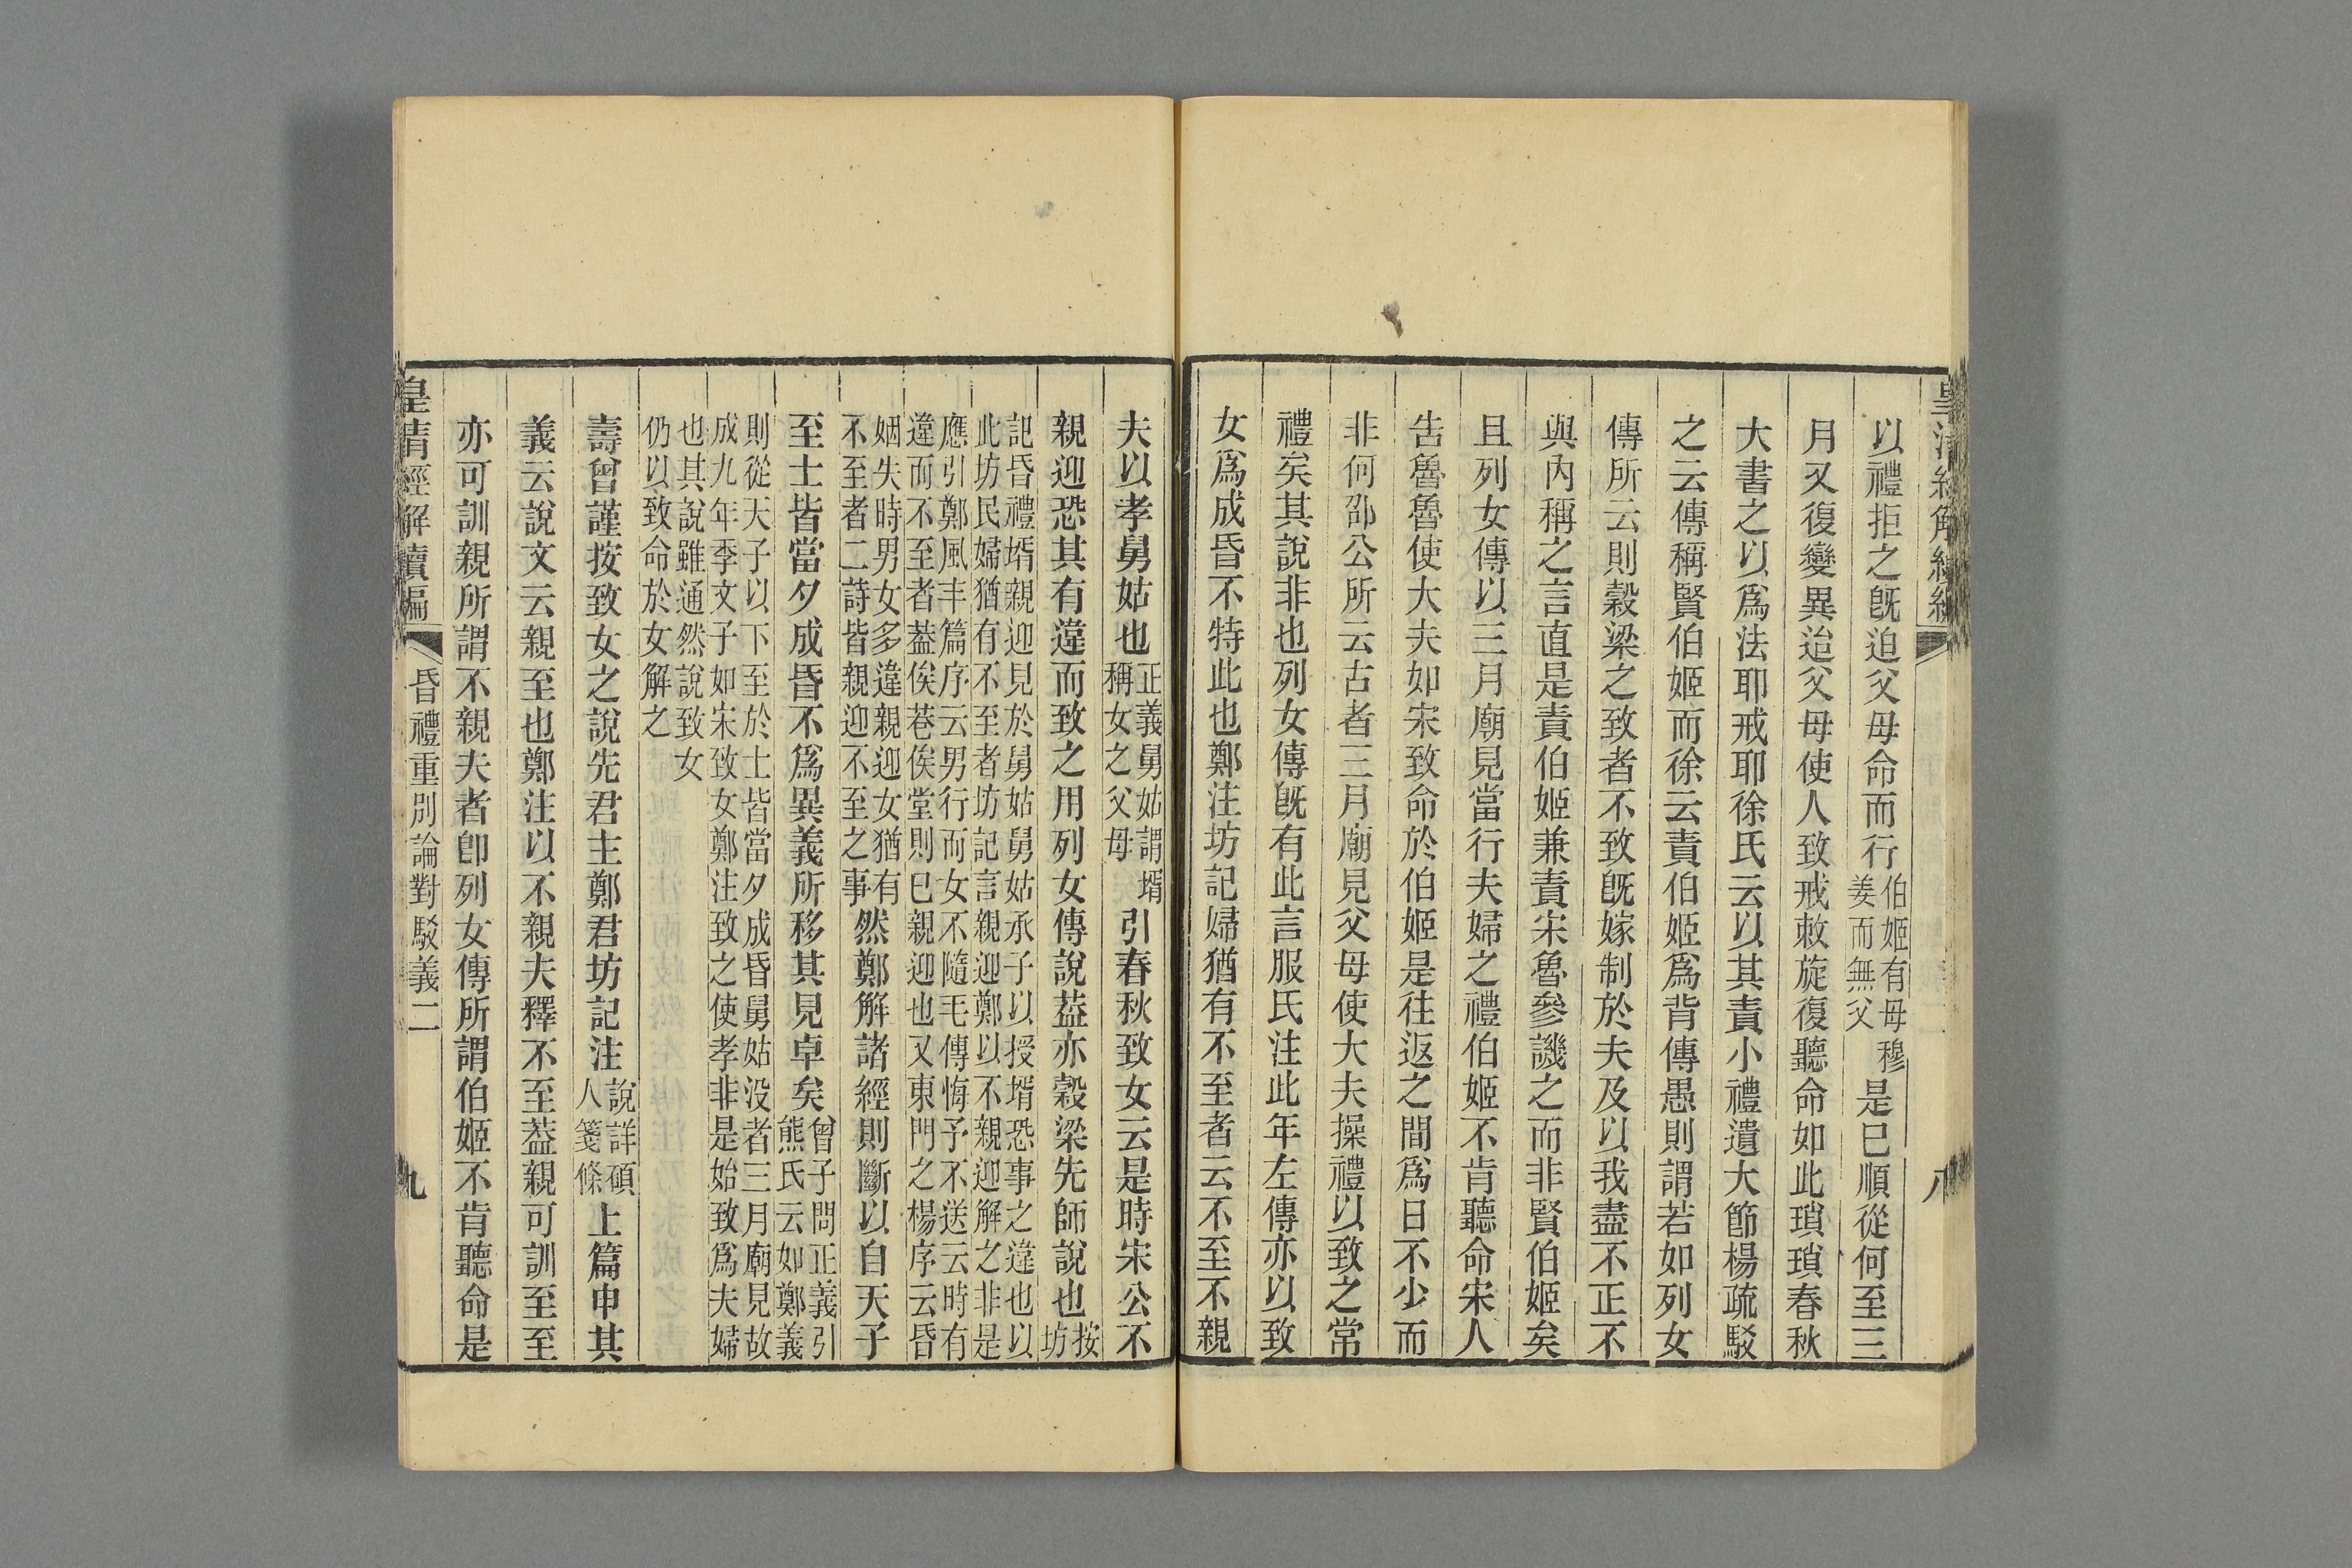 皇清經解續編
八
以禮拒之旣迫父母命而行伯姬有母穆姜而無父是已順從何至三
月又復變異迨父母使人致戒敕旋復聽命如此瑣瑣春秋
大書之以爲法耶戒耶徐氏云以其責小禮遺大節楊疏駁
之云傳稱賢伯姬而徐云責伯姬爲背傳愚則謂若如列女
傳所云則穀梁之致者不致旣嫁制於夫及以我盡不正不
與內稱之言直是責伯姬兼責宋魯參譏之而非賢伯姬矣
且列女傳以三月廟見當行夫婦之禮伯姬不肯聽命宋人
告魯魯使大夫如宋致命於伯姬是往返之間爲日不少而
非何邵公所云古者三月廟見父母使大夫操禮以致之常
禮矣其說非也列女傳旣有此言服氏注此年左傳亦以致
女爲成昏不特此也鄭注坊記婦猶有不至者云不至不親
夫以孝舅姑也正義舅姑謂壻稱女之父母引春秋致女云是時宋公不
親迎恐其有違而致之用列女傳說葢亦穀梁先師說也按坊
記昏禮壻親迎見於舅姑舅姑承子以授壻恐事之違也以
此坊民婦猶有不至者坊記言親迎鄭以不親迎解之非是
應引鄭風丰篇序云男行而女不隨毛傳悔予不送云時有
違而不至者葢俟巷俟堂則已親迎也又東門之楊序云昏
姻失時男女多違親迎女猶有
不至者二詩皆親迎不至之事然鄭解諸經則斷以自天子
至士皆當夕成昏不爲異義所移其見卓矣曾子問正義引熊氏云如鄭義
則從天子以下至於士皆當夕成昏舅姑没者三月廟見故
成九年季文子如宋致女鄭注致之使孝非是始致爲夫婦
也其說雖通然說致女
仍以致命於女解之
壽曾謹按致女之說先君主鄭君坊記注說詳碩人箋條上篇申其
義云說文云親至也鄭注以不親夫釋不至葢親可訓至至
亦可訓親所謂不親夫者卽列女傳所謂伯姬不肯聽命是
皇清經解續編
昏禮重別論對駁義二
九